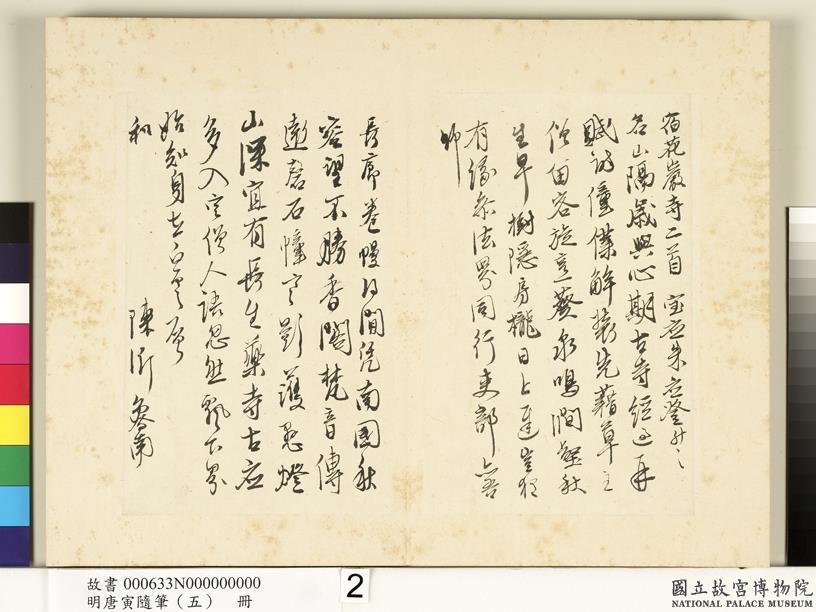 宿花巖寺二首
名山隔歲與心期古寺經過再
賦詩僮僕解裝先藉草主
僧留客旋烹葵泉鳴澗壑秋
生早樹隱房櫳日上遲豈獨
有緣參法界同行吏部is吾
師
長廊卷幔日間凭南國秋
容望不勝香閣梵音傳
遠磬石幢影護
燈
山深宜有長生藥寺古應
多入定僧人語忽然飄下界
始知身在白雲層
和
陳沂魯南
故書 000633N000000000
明唐寅隨筆（五） 冊
2
國立故宮博物院
NATIONAL PALACE MUSEUM